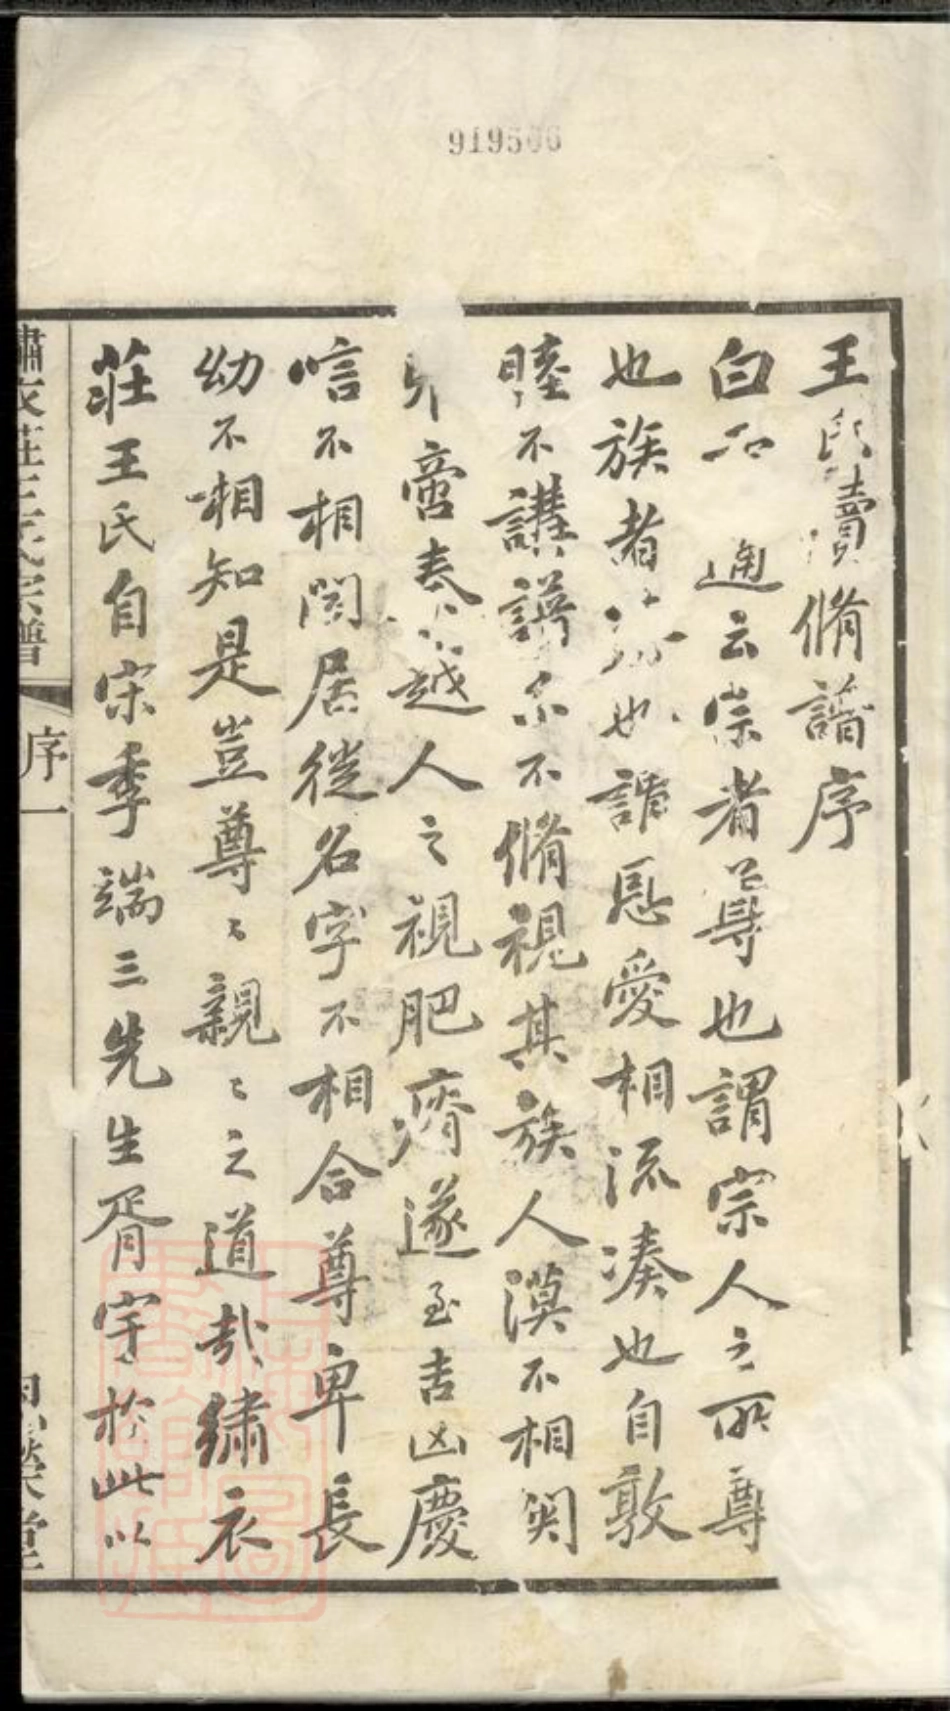 919566
王氏續脩譜序
白虎通云宗者尊也謂宗人之所尊
也族者湊也謂恩愛相流湊也自敦
睦不講譜系不脩視其族人漠不相關
啻秦越人之視肥瘠遂至吉凶慶
唁不相聞居徙名字不相合尊卑長
幼不相知是豈尊〻親〻之道哉繡衣
莊王氏自宋季端三先生胥宇於此以
繡衣莊王氏宗譜
序一
榮堂